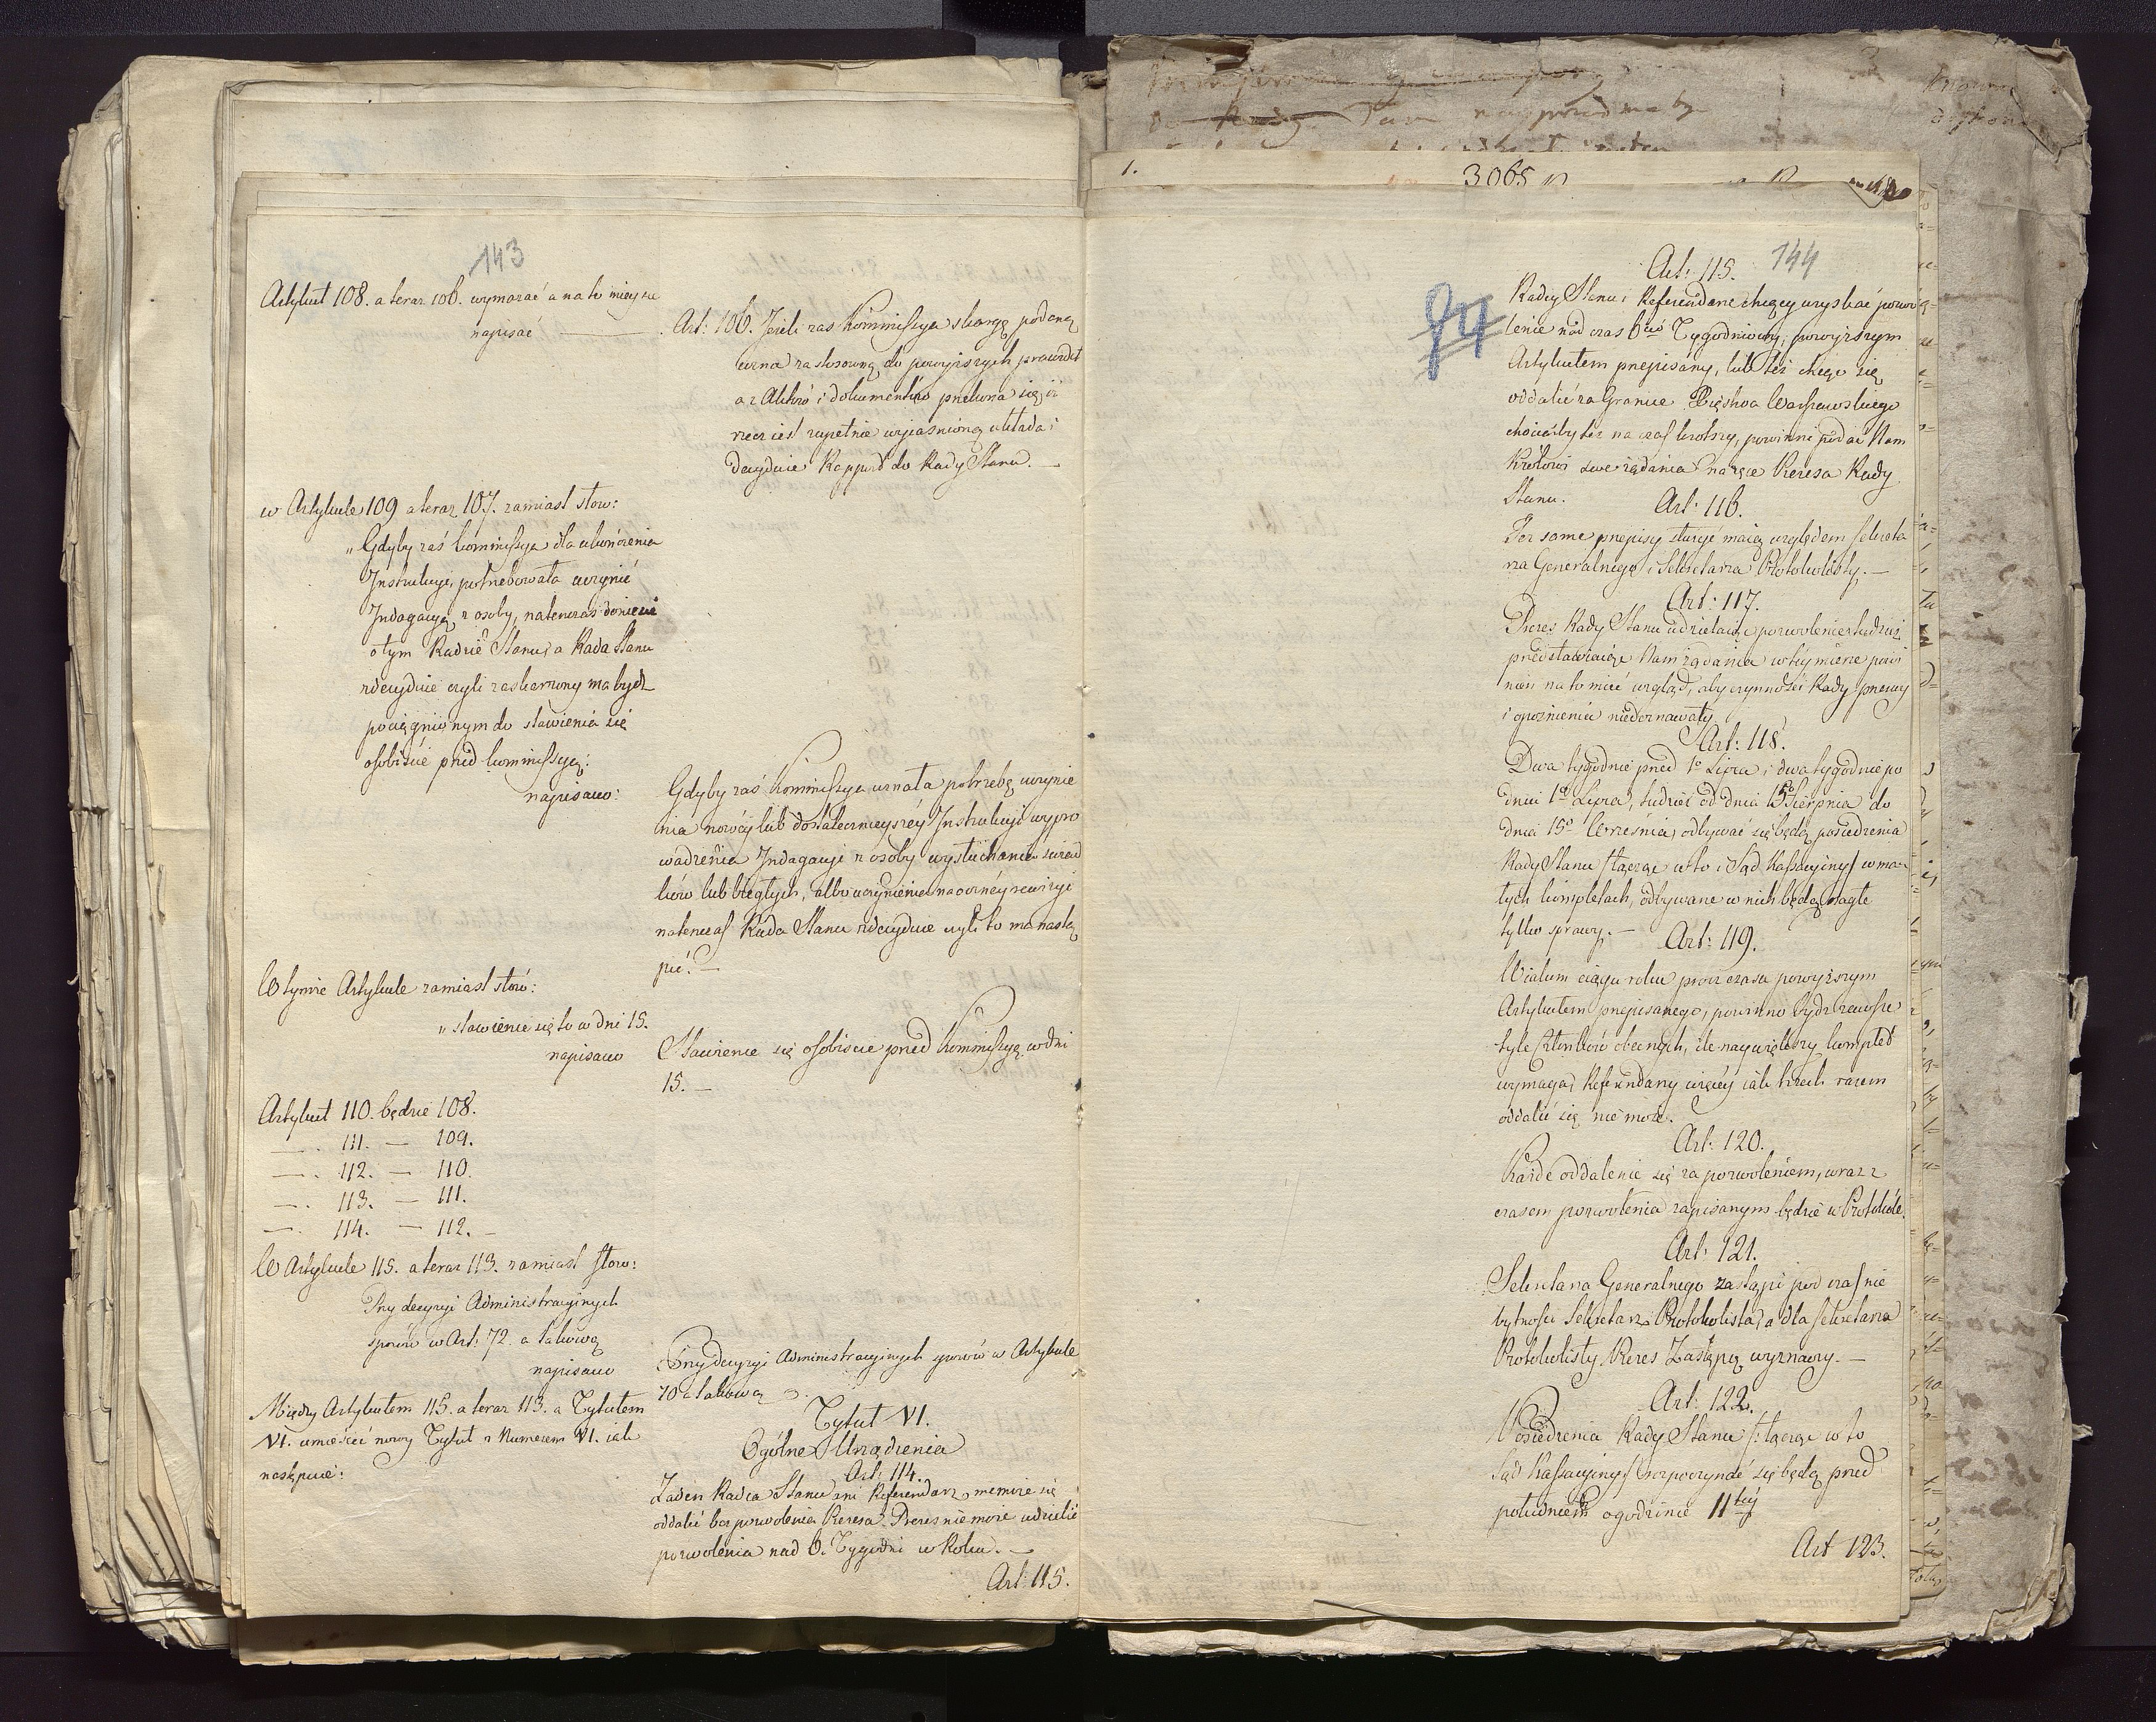 143
Artykuł 108. a teraz 106. wymazać a na to mieysce
napisać
Art: 106. Jeżeli zas Kommissya skargę podaną
uzna zastosowną do powyższych prawideł
a z Aktów i dokumentów przekona się, iż
rzecz iest zupełnie wyjasnioną układa i
decyduie Rapport do Rady Stanu. —
w Artykule 109 a teraz 107. zamiast słow:
„Gdyby zaś kommissya dla utworzenia
Instrukcyi, potrzebowała uczynić
Indagacyą z osoby, natenczas doniesie
o tym Radzie Stanu, a Rada Stanu
zdecyduie czyli zaskarżony ma bydź
pociągnionym do stawienia się
osobiście przed kommissyą:
napisano:
Gdyby zaś Kommissya uznała potrzebę uczynie
nia nowéj lub dostatecznieyszéy Instrukcyi wypro
wadzenia Indagacyi z osoby wysłuchania świad
ków lub biegłych, albo uczynienia naoczнéy rewizyi
natenczas Rada Stanu zdecyduie czyli to ma nastą
pić. —
W tymże Artykule zamiast słów:
„ stawienie się to w dni 15.
napisano
Stawienie się osobiscie przed Kommissyą w dni
15. —
Artykuł 110. będzie 108.
— . 111. — 109.
— . 112. — 110.
— . 113. — 111.
— . 114. — 112. —
W Artykule 115. a teraz 113. zamiast słow:
Przy decyzyi Administracyinych
sporów w Art: 72. a takową
napisano
Przy decyzyi Administracyinych sporów w Artykule
70 a takową
Między Artykułem 115. a teraz 113. a Tytułem
VI. umieścić nowy Tytuł z Numerem VI. iak
następuie:
Tytuł VI.
Ogólne Urządzenia
Art: 114.
Żaden Radca Stanu ani Referendarz niemoże się
oddalić bez pozwolenia Prezesa. Prezes nie może udzielić
pozwolenia nad 6. Tygodni w Roku. —
Art: 115.
1.
3065
144
Art: 115.
Radcy Stanu i Referendarze chcący uzyskać pozwo
lenie nad czas 6ciu Tygodniowy, powyższym
Artykułem przepisany, lub też chcąc się
oddalić za Granice Xięstwa Warszawskiego
chociażby też na czas krótszy, powinni podać Nam
Królowi swe żądania na ręce Prezesa Rady
Stanu.
Art: 116.
Też same przepisy służyć maią względem Sekreta
rza Generalnego i Sekretarza Protokolisty. —
Art: 117.
Prezes Rady Stanu udzielaiąc pozwolenie tudzież
przedstawiaiąc Nam żądania w téy mierze powi
nien na to mieć wzgląd, aby czynności Rady przerwy
i opoźnienia niedoznawały
Art: 118.
Dwa tygodnie przed 1o Lipca i dwa tygodnie po
dniu 1o Lipca, tudzież od dnia 15o Sierpnia do
dnia 15o Września, odbywać się będą posiedzenia
Rady Stanu /łącząc w to i Sąd Kassacyiny/ w ma-
łych kompletach, odbywane w nich będą nagłe
tylko sprawy. —
Art: 119.
W całym ciągu roku procz czasu powyższym
Artykułem przepisanego, powinno bydź zawsze
tyle Członków obecnych, ile naywiększy komplet
wymaga, Referendarzy więcéy iak trzech razem
oddalić się nie może.
Art: 120.
Każde oddalenie się za pozwoleniem, wraz z
czasem pozwolenia zapisanym będzie w Protokóle.
Art: 121.
Sekretarza Generalnego zastąpi pod czas nie
bytności Sekretarz Protokolista, a dla Sekretarza
Protokolisty Prezes Zastępcę wyznaczy. —
Art: 122.
Posiedzenia Rady Stanu /: łącząc w to
Sąd Kassacyiny/ rozpoczynać się będą przed
południem o godzinie 11téj
Art 123.